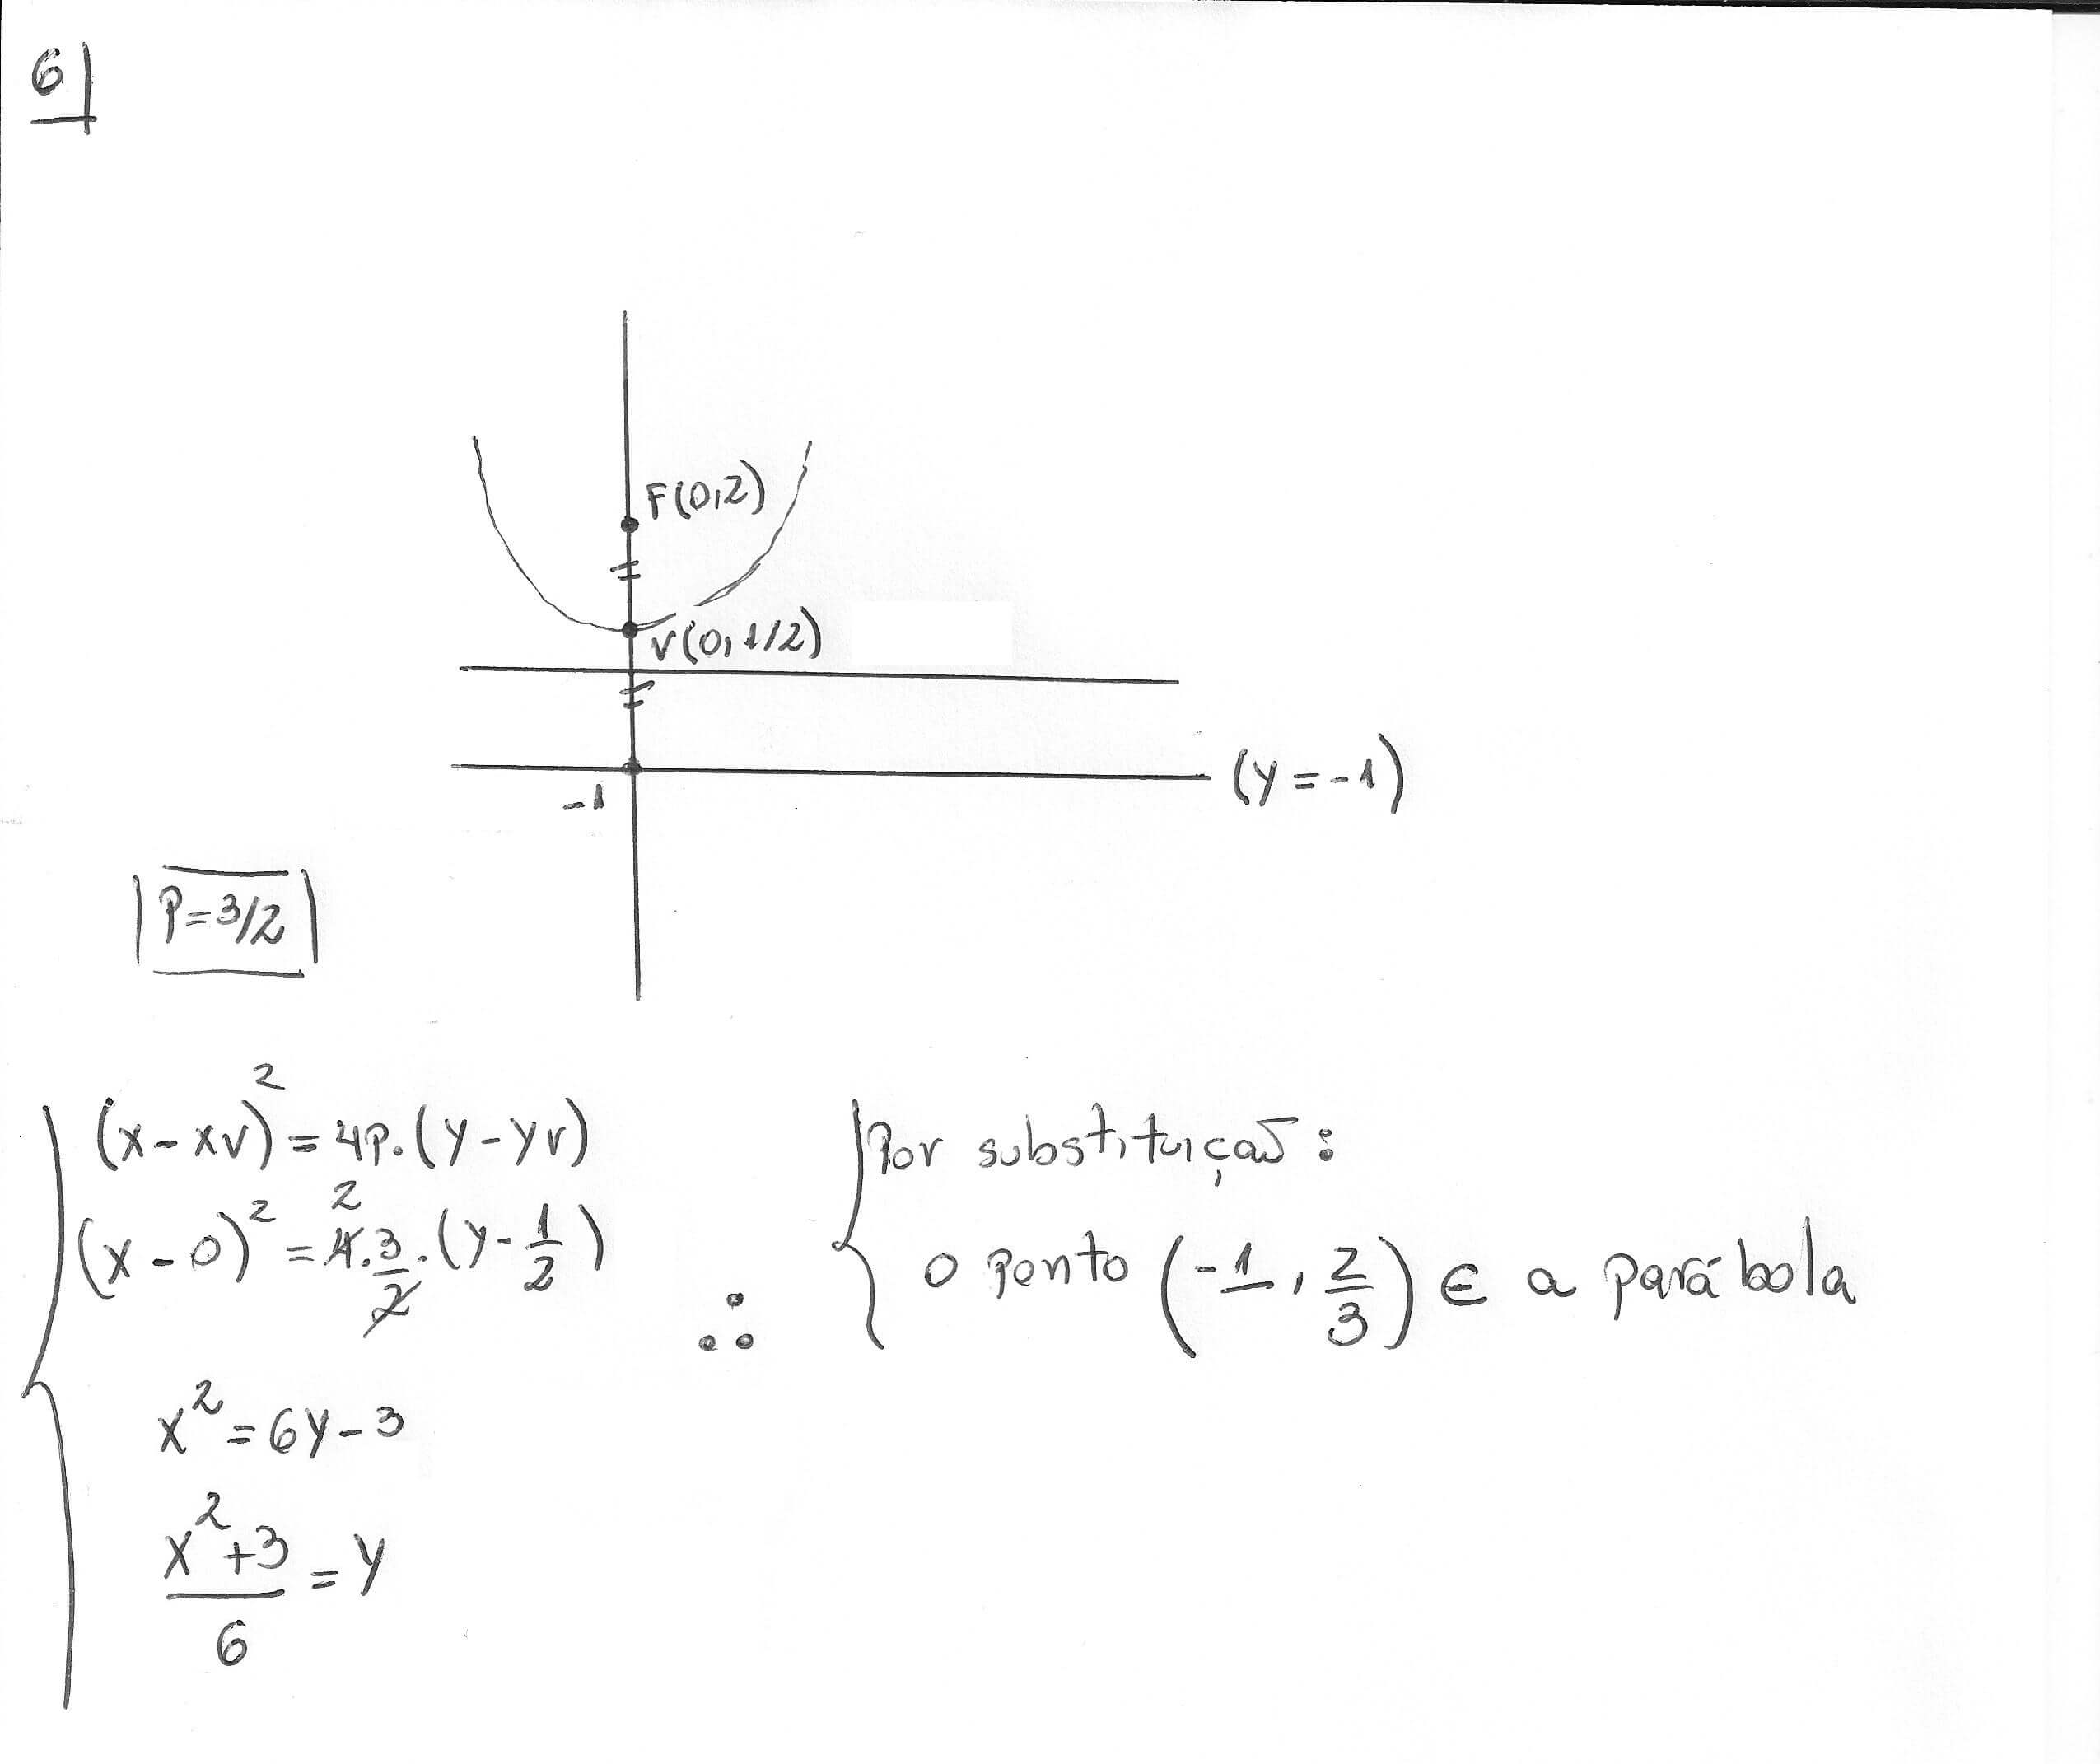 6
F(0,2)
V(0, 1/2)
(y = -1)
-1
P = 3/2
(x - xv)² = 4p.(y - yv)
(x - 0)² = 4.3/2.(y - 1/2)
2
x² = 6y - 3
x² + 3 / 6 = y
∴
Por substituição:
o ponto (-1, 2/3) ∈ a parábola